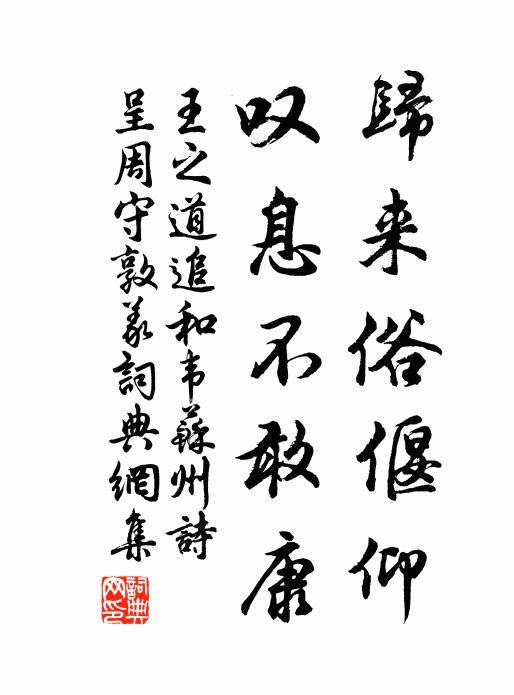 歸来俗偃仰
叹息不敢康
王之道追和韦蘇州詩
呈周守敦义詞典網集
詞典网印